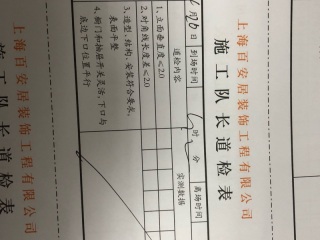 上海百安居装饰工程有限公司
施工队长道检表
月26日 到场时间 时 分 离场时间
道检内容 实测数据
1、立面垂直度≤2.0
2、对角线长度差≤2.0
3、造型、结构、安装符合要求，
表面平整
4、橱门和抽屉开关灵活，下口与
底边下口位置平行
上海百安居装饰工程有限公司
施工队长道检表